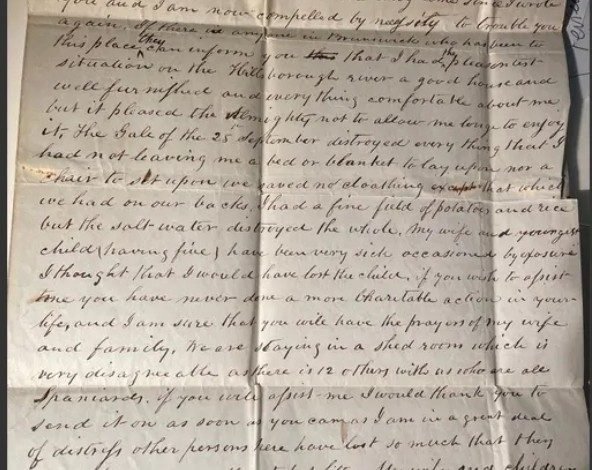 you and I am now compelled by necssity to trouble you
again. If there is any one in Brunswick who has been to
this place they can inform you that I had the pleasentest
situation on the Hillsborough river a good house and
well furnished and every thing comfortable about me
but it pleased the Almighty not to allow me longe to enjoy
it. The Gale of the 25 September distroyed every thing that I
had not leaving me a bed or blanket to lay upon nor a
chair to set upon we saved no cloathing except that which
we had on our backs, I had a fine field of potatoes and rice
but the salt water distroyed the whole. My wife and youngest
child (having five) have been very sick occasioned by exposure
I thought that I would have lost the child, if you wish to assist
me you have never done a more Charitable action in your
life, and I am sure that you will have the prayers of my wife
and family, We are staying in a shed room which is
very disagreeable as there is 12 others with us who are all
Spaniards. if you will assist me I would thank you to
send it on as soon as you can as I am in a great deal
of distress other persons here have lost so much that they